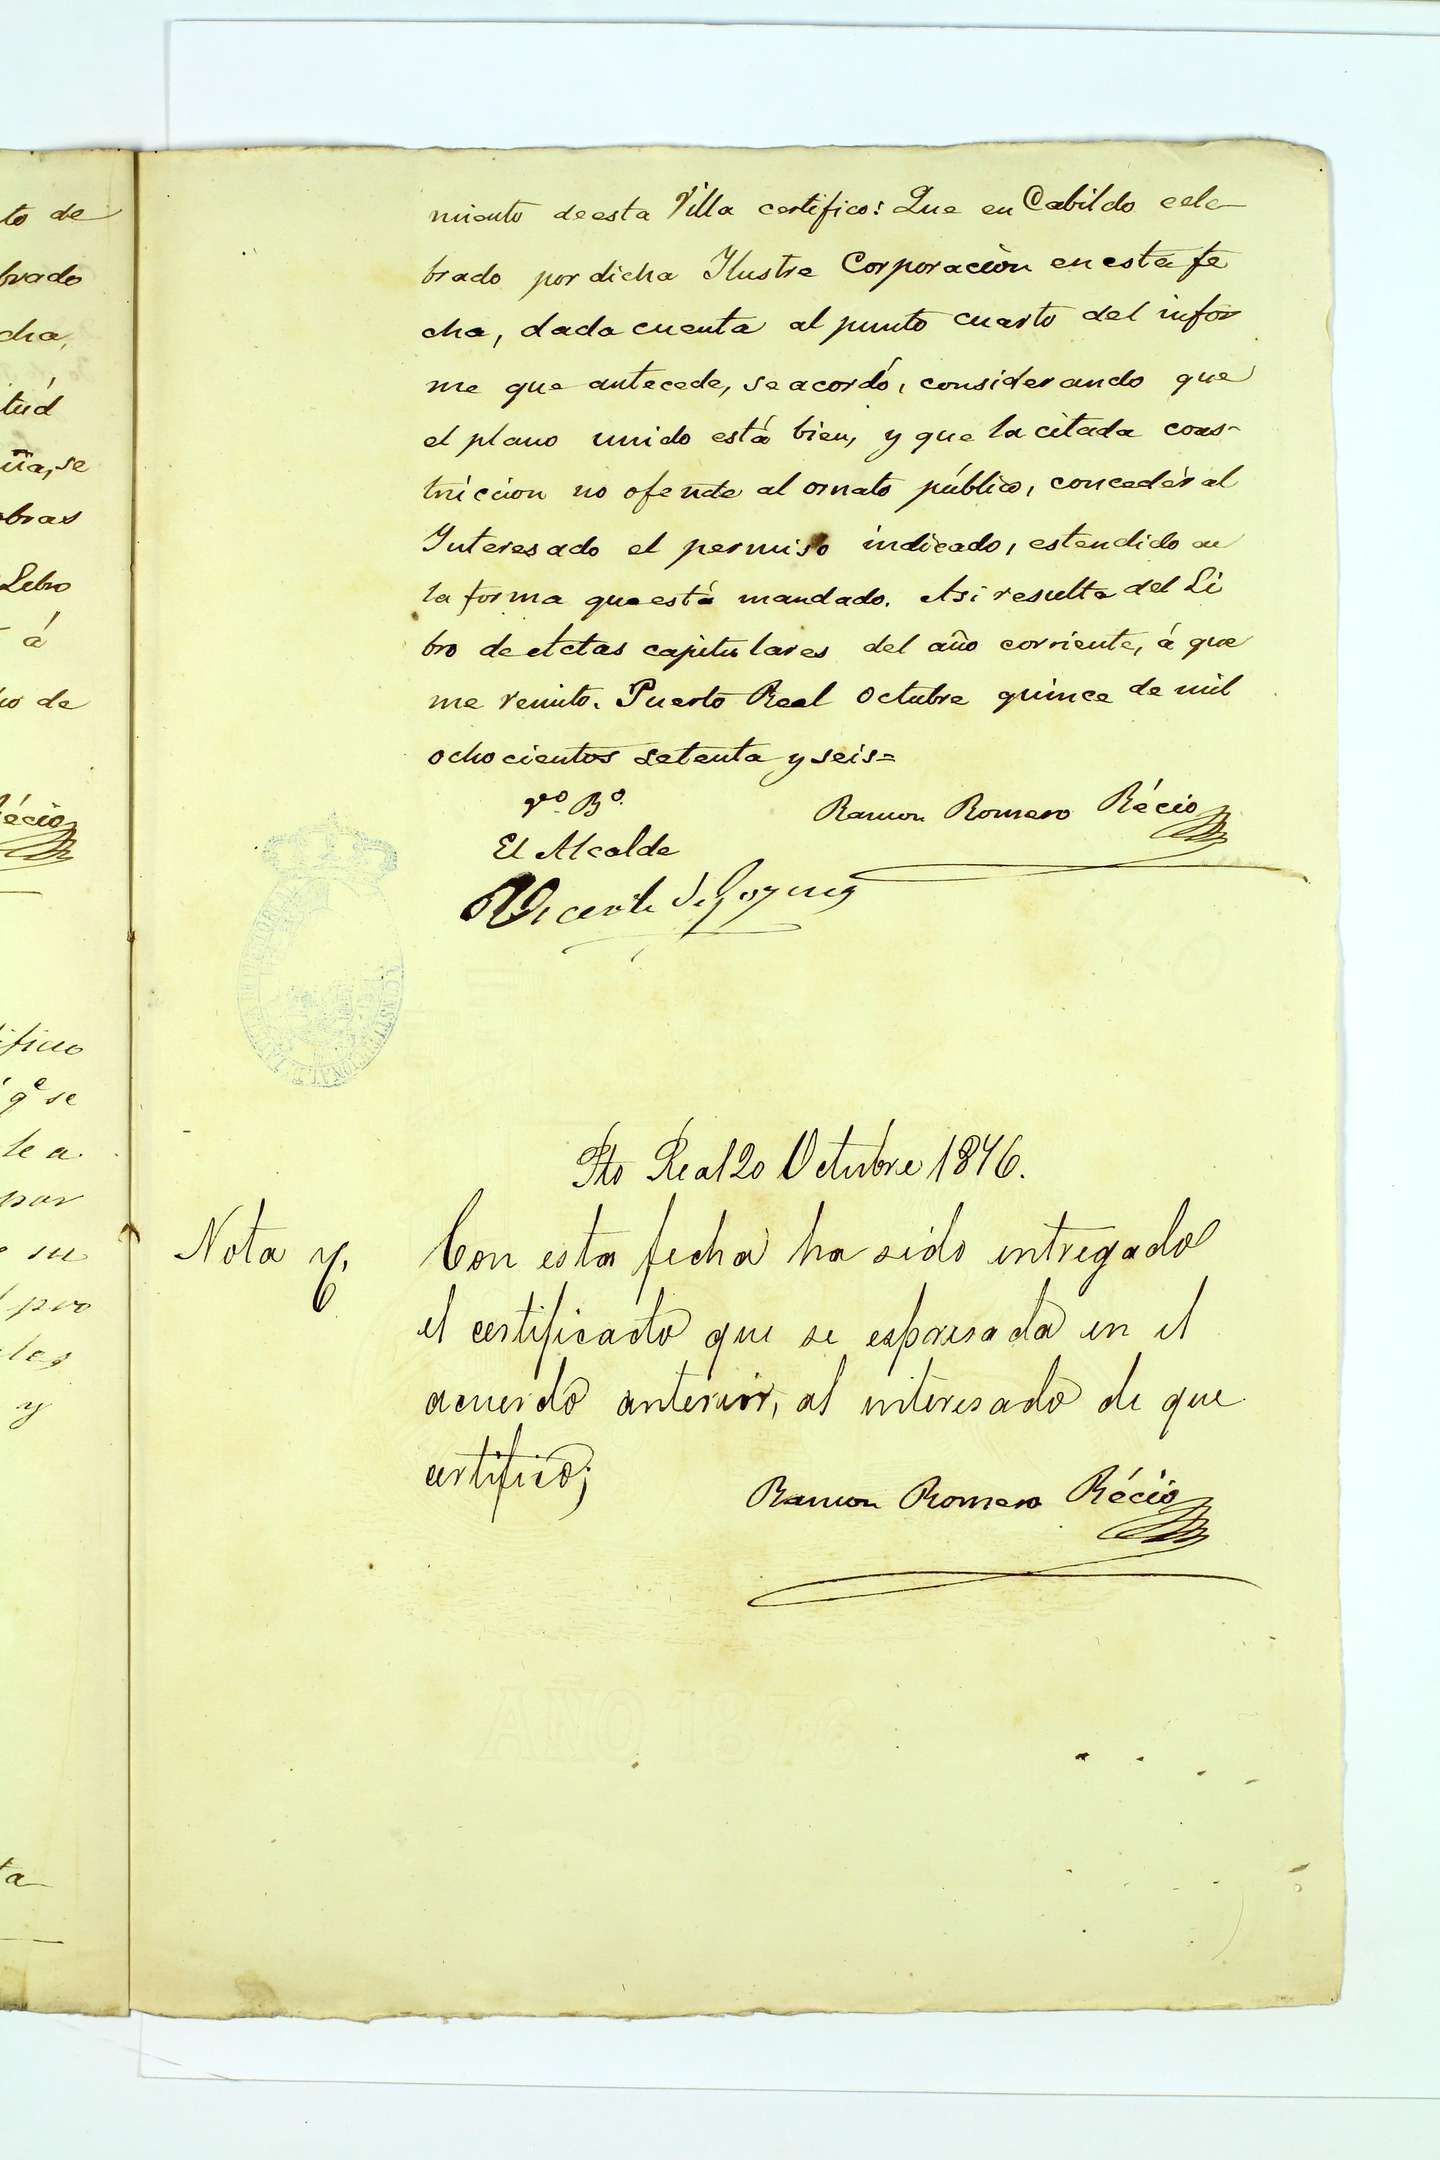 to de
brado
cha,
itúd
uña, se
obras
Lebro
á
io de
Récio
ifico
q.e se
le a
por
su
pro
les
y
ta
miento de esta Villa certifico: Que en Cabildo cele-
brado por dicha Ilustre Corporación en esta fe
cha, dada cuenta al punto cuarto del infor
me que antecede, se acordó, considerando que
el plano unido está bien, y que la citada cons-
truccion no ofende al ornato público, concedér al
Interesado el permiso indicado, estendido en
la forma que está mandado. Asi resulta del Li
bro de Actas capitulares del año corriente, á que
me remito. Puerto Real Octubre quince de mil
ochocientos setenta y seis=
Vº. Bº.
El Alcalde
Ramon Romero Récio
Vicente
CONSTITUCIONAL
Pto Real 20 Octubre 1876.
Nota y.
Con esta fecha ha sido entregado
el certificado que se espresada en el
acuerdo anterior, al interesado de que
certifico;
Ramon Romero Récio
AÑO 1876